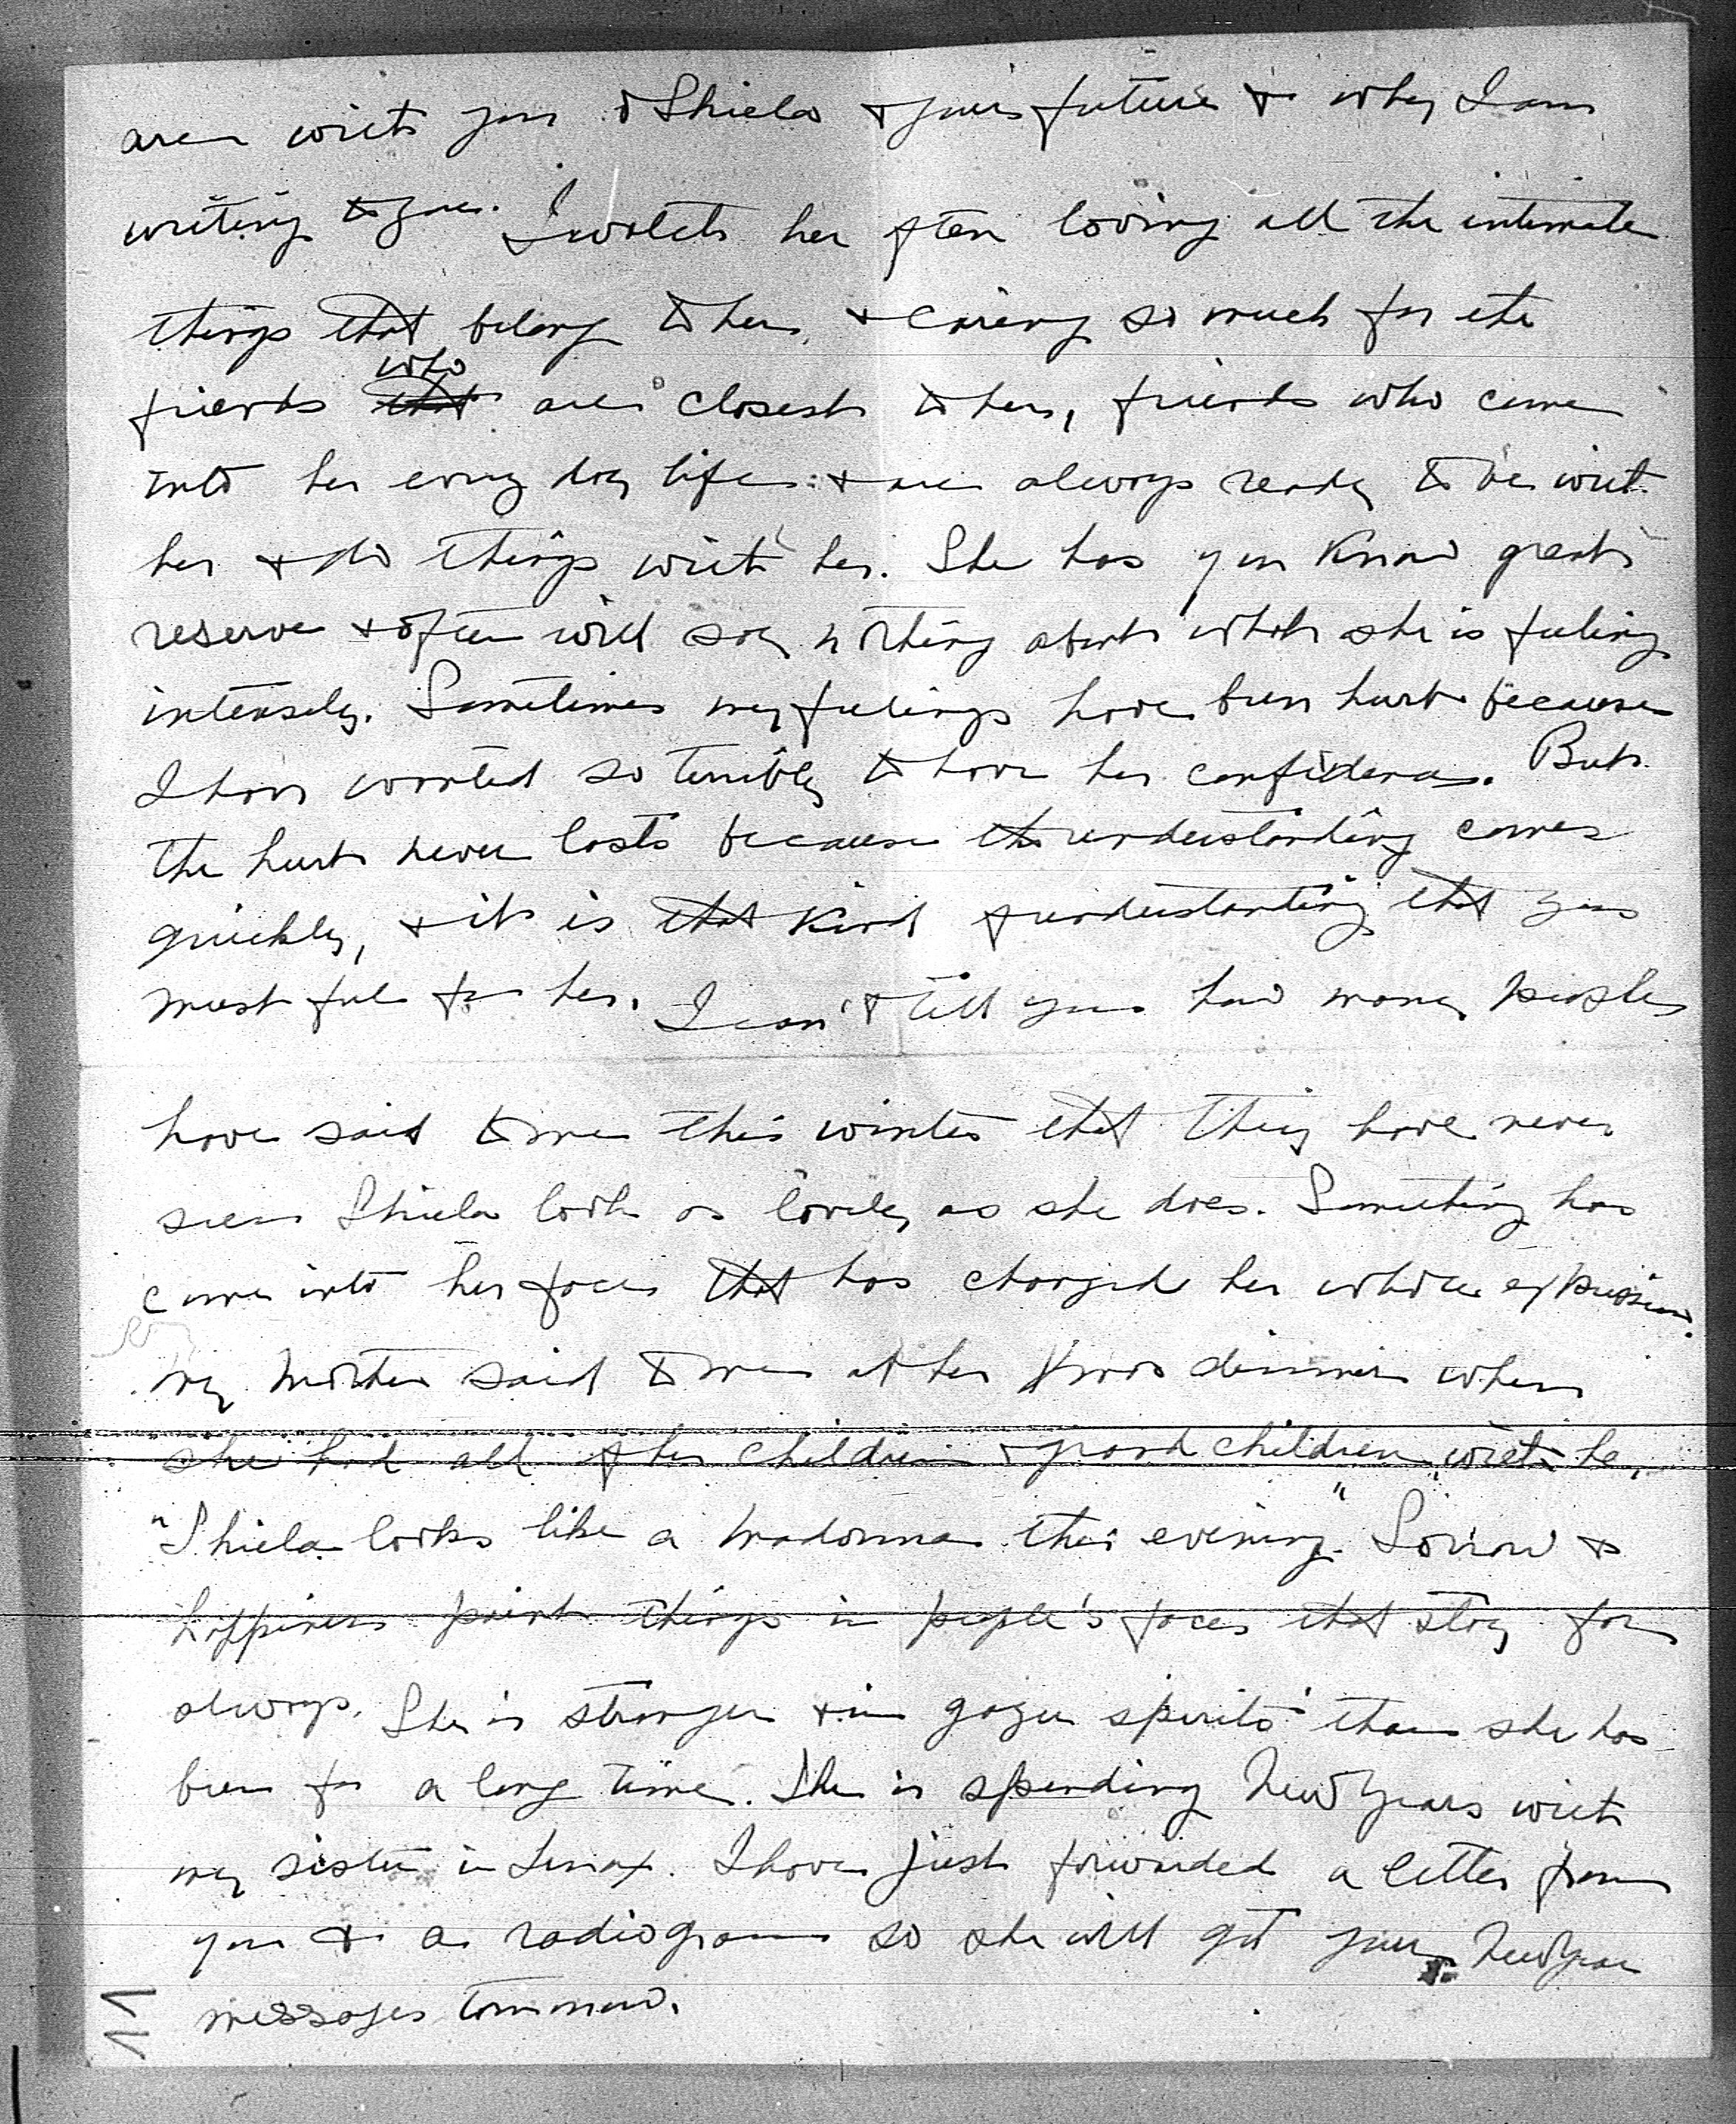 are with you & Shiela & your future & why I am
writing to you. I watch her often loving all the intimate
things that belong to her, & caring so much for the
who
friends that are closest to her, friends who come
into her every day life & are always ready to be with
her & do things with her. She has you know great
reserve & often will say nothing about what she is feeling
intensely. Sometimes my feelings have been hurt because
I have wanted so terribly to have her confidence. But
the hurt never lasts because the understanding comes
quickly, & it is that kind of understanding that you
must feel for her. I can't tell you how many people
have said to me this winter that they have never
seen Shiela look as lovely as she does. Something has
come into her face that has changed her whole expression.
My Mother said to me at her Xmas dinner when
she had all of her children & grandchildren with her,
"Shiela looks like a Madonna this evening." Sorrow &
happiness paint things in people's faces that stay for
always. She is stronger & in gayer spirits than she has
been for a long time. She is spending New Years with
my sister in Lenox. I have just forwarded a letter from
you & a radiogram so she will get your New Year
messages tomorrow.
11